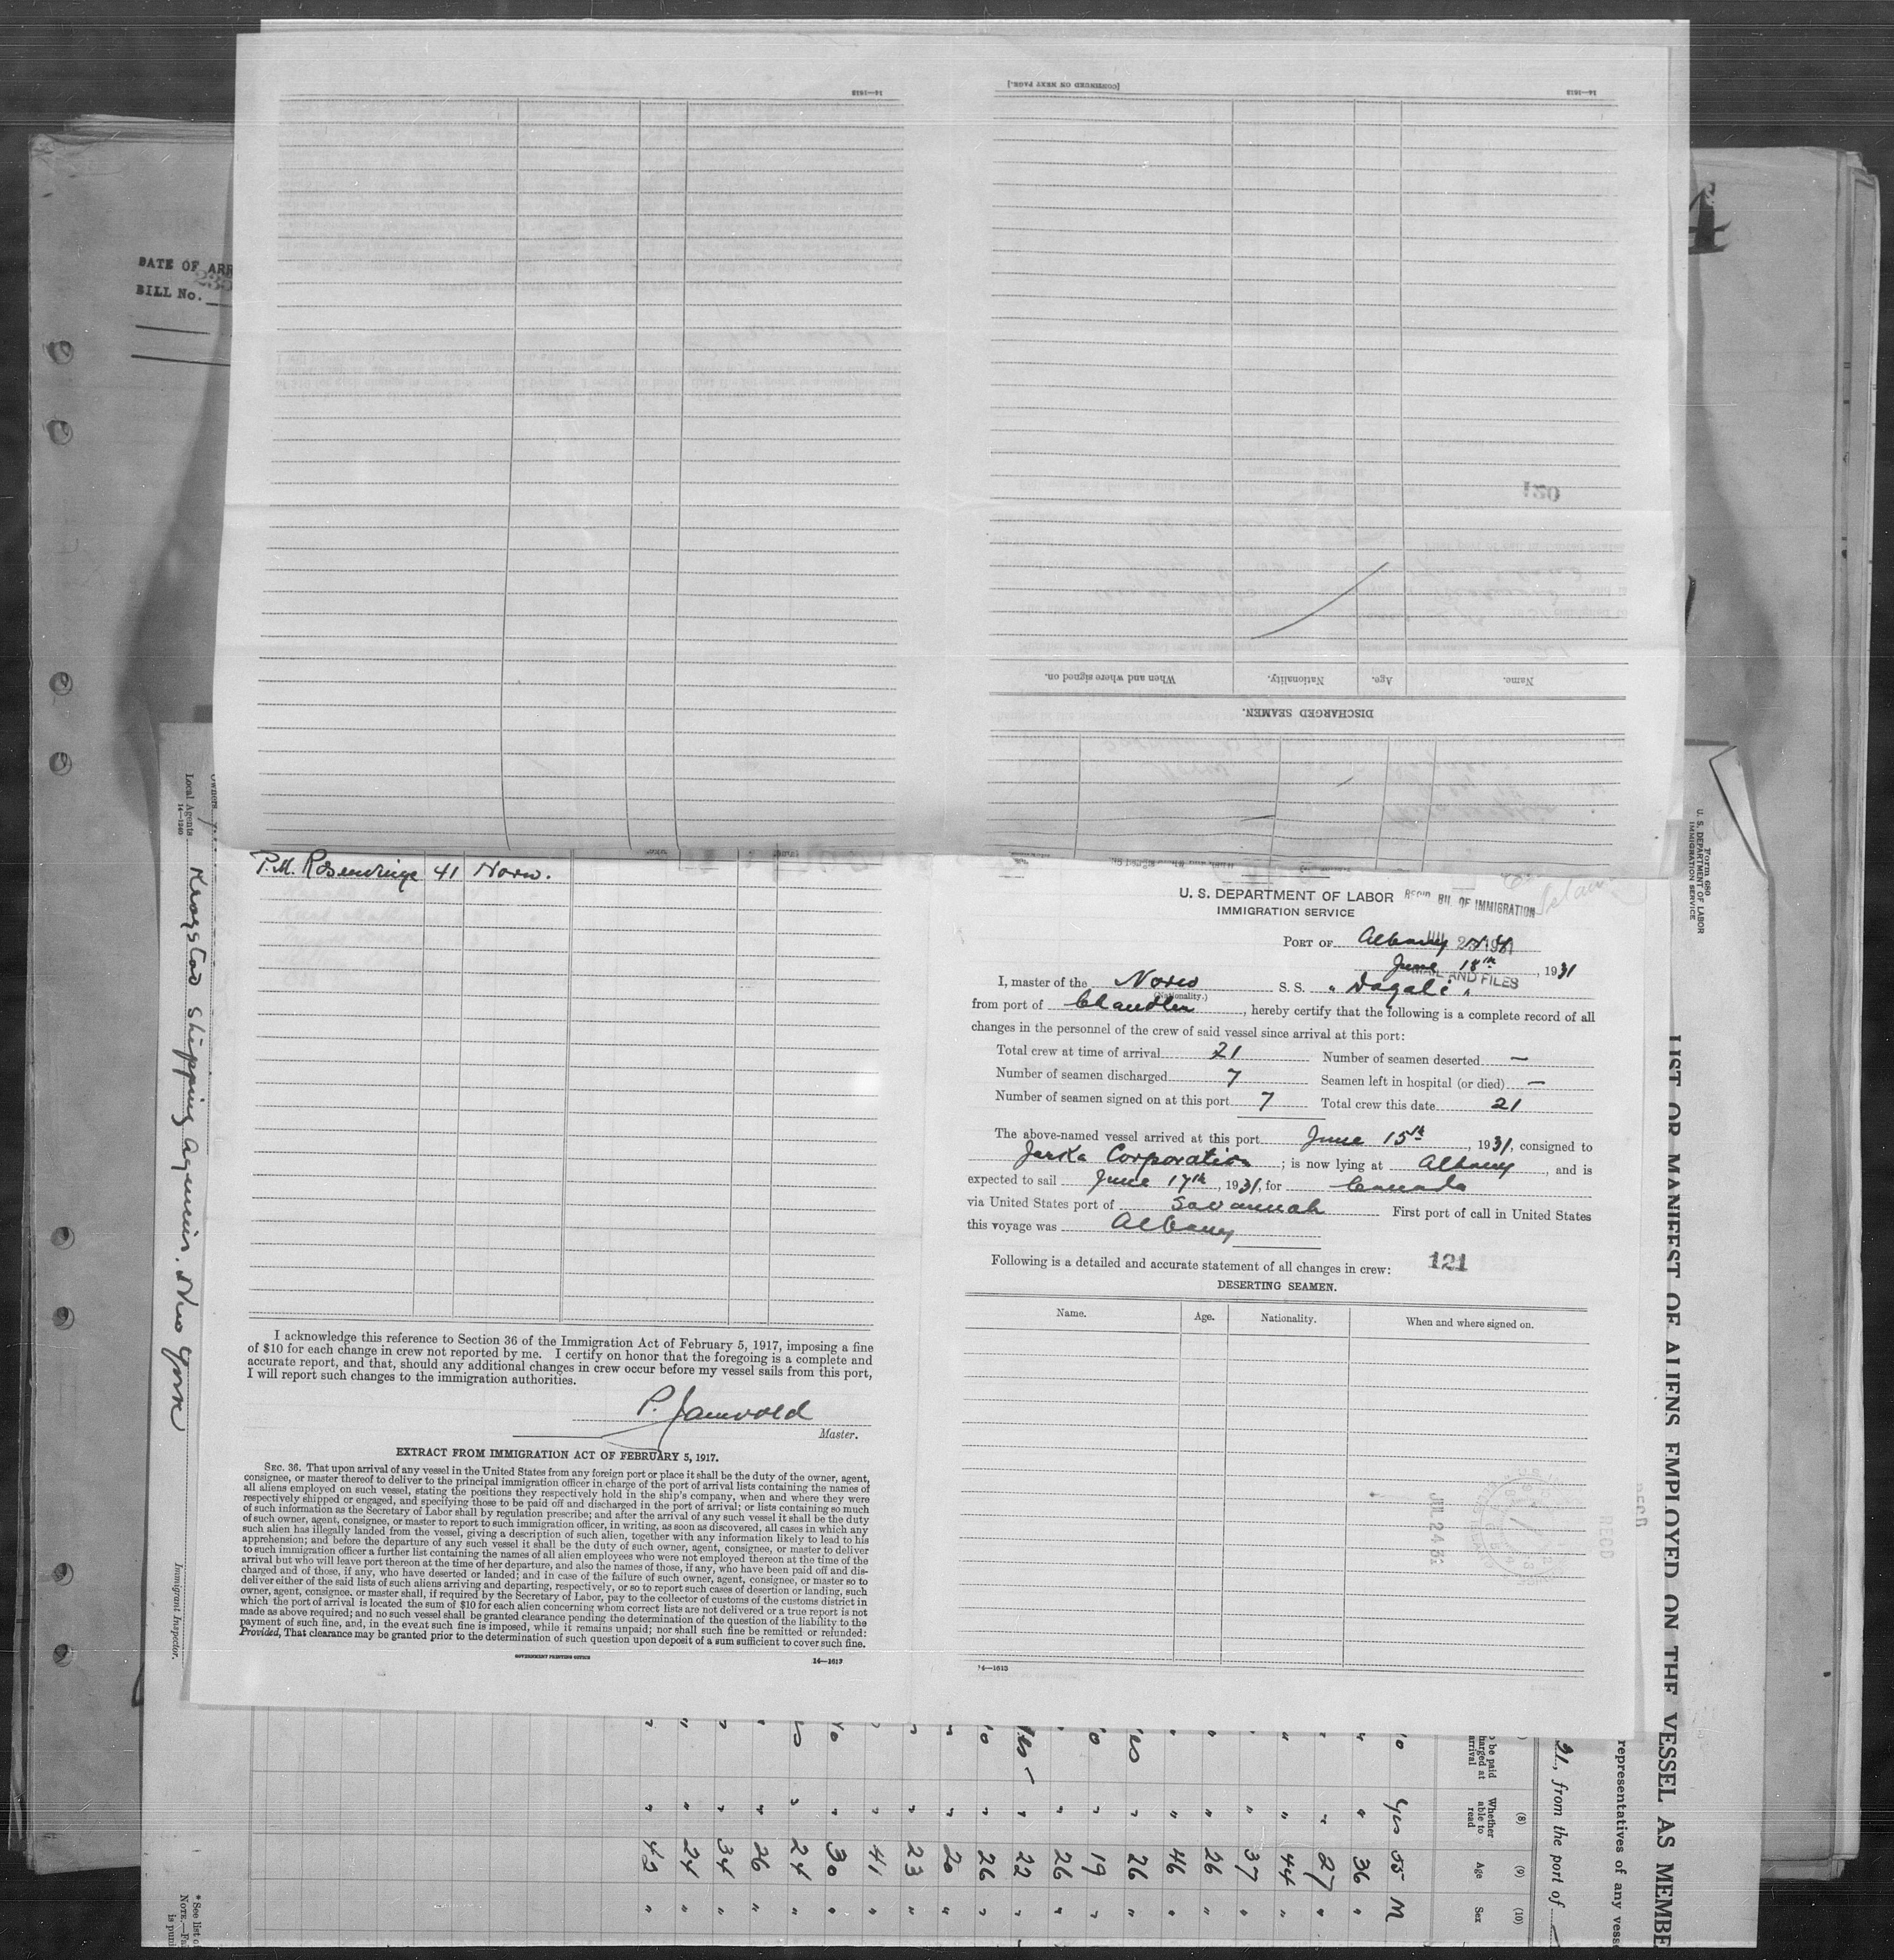 14—1613
[CONTINUED ON NEXT PAGE.]
14—1613
DATE OF ARR
BILL No.
120
Name. Age. Nationality. When and where signed on.
DISCHARGED SEAMEN.
41 Norw.
U. S. DEPARTMENT OF LABOR
IMMIGRATION SERVICE
REC'D. BU. OF IMMIGRATION
MAIL AND FILES
PORT OF Albany N.Y.
June 18th, 1931
I, master of the Norw S. S. "Dagali"
(Nationality.)
from port of Chandler, hereby certify that the following is a complete record of all
changes in the personnel of the crew of said vessel since arrival at this port:
Total crew at time of arrival 21 Number of seamen deserted —
Number of seamen discharged 7 Seamen left in hospital (or died) —
Number of seamen signed on at this port 7 Total crew this date 21
The above-named vessel arrived at this port June 15th, 1931, consigned to
Corporation; is now lying at Albany, and is
expected to sail June 17th, 1931, for Canada
via United States port of Savannah First port of call in United States
this voyage was Albany
Following is a detailed and accurate statement of all changes in crew:
121
DESERTING SEAMEN.
Name. Age. Nationality. When and where signed on.
14—1613
I acknowledge this reference to Section 36 of the Immigration Act of February 5, 1917, imposing a fine
of $10 for each change in crew not reported by me. I certify on honor that the foregoing is a complete and
accurate report, and that, should any additional changes in crew occur before my vessel sails from this port,
I will report such changes to the immigration authorities.
P.
Master.
EXTRACT FROM IMMIGRATION ACT OF FEBRUARY 5, 1917.
SEC. 36. That upon arrival of any vessel in the United States from any foreign port or place it shall be the duty of the owner, agent,
consignee, or master thereof to deliver to the principal immigration officer in charge of the port of arrival lists containing the names of
all aliens employed on such vessel, stating the positions they respectively hold in the ship's company, when and where they were
respectively shipped or engaged, and specifying those to be paid off and discharged in the port of arrival; or lists containing so much
of such information as the Secretary of Labor shall by regulation prescribe; and after the arrival of any such vessel it shall be the duty
of such owner, agent, consignee, or master to report to such immigration officer, in writing, as soon as discovered, all cases in which any
such alien has illegally landed from the vessel, giving a description of such alien, together with any information likely to lead to his
apprehension; and before the departure of any such vessel it shall be the duty of such owner, agent, consignee, or master to deliver
to such immigration officer a further list containing the names of all alien employees who were not employed thereon at the time of the
arrival but who will leave port thereon at the time of her departure, and also the names of those, if any, who have been paid off and dis-
charged and of those, if any, who have deserted or landed; and in case of the failure of such owner, agent, consignee, or master so to
deliver either of the said lists of such aliens arriving and departing, respectively, or so to report such cases of desertion or landing, such
owner, agent, consignee, or master shall, if required by the Secretary of Labor, pay to the collector of customs of the customs district in
which the port of arrival is located the sum of $10 for each alien concerning whom correct lists are not delivered or a true report is not
made as above required; and no such vessel shall be granted clearance pending the determination of the question of the liability to the
payment of such fine, and, in the event such fine is imposed, while it remains unpaid; nor shall such fine be remitted or refunded:
Provided, That clearance may be granted prior to the determination of such question upon deposit of a sum sufficient to cover such fine.
GOVERNMENT PRINTING OFFICE
14—1613
Owners
Local Agents Krogstad Shipping Agencies. New York
14—1240
Immigrant Inspector.
Form 680
U. S. DEPARTMENT OF LABOR
IMMIGRATION SERVICE
LIST OR MANIFEST OF ALIENS EMPLOYED ON THE VESSEL AS MEMBE
representatives of any vesse
31, from the port of
be paid
harged at
arrival
(8)
Whether
able to
read
(9)
Age
(10)
Sex
yes 55 M
36
27
44
37
26
46
26
19
26
22
26
20
23
41
30
24
26
34
24
42
* See list of
NOTE.—Fa
is puni
RECD